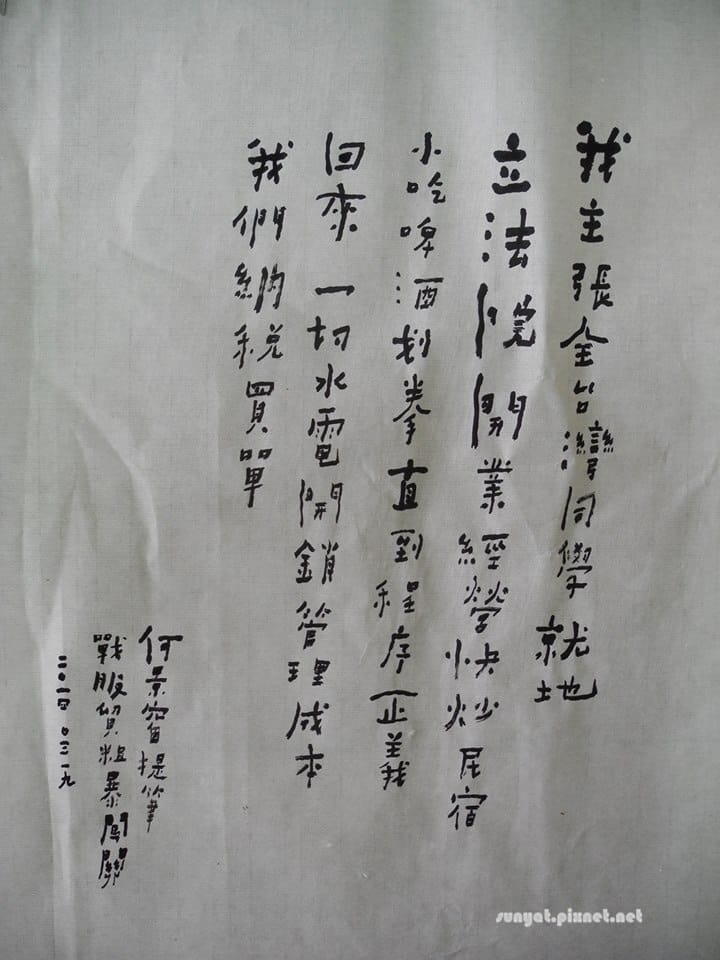 我主張全台灣同學就地
立法院開業經營快炒民宿
小吃啤酒划拳直到程序正義
回來一切水電開銷管理成本
我們納稅買單
何景窗提筆
戰服貿粗暴闖關
二〇一四 〇三一九
sunyat.pixnet.net